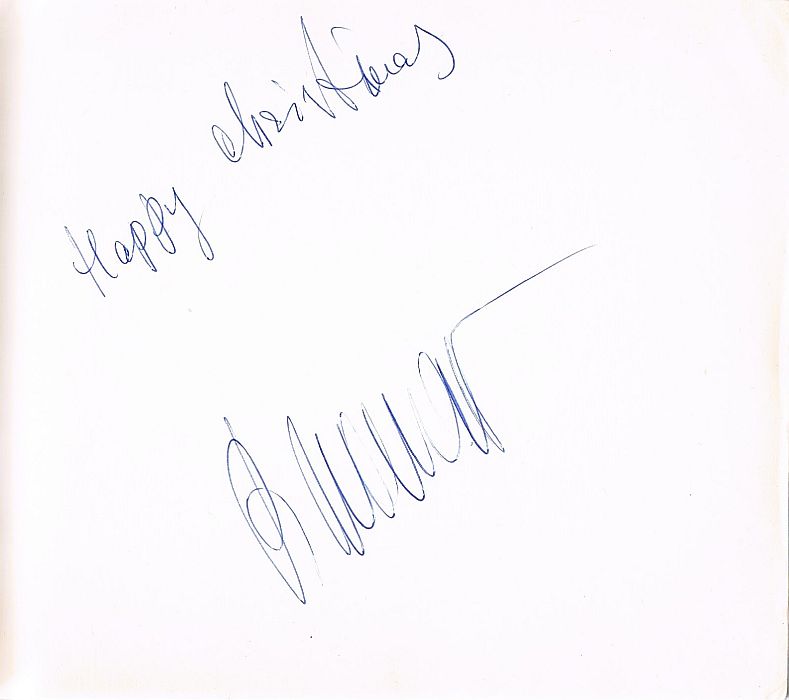 Happy christmas